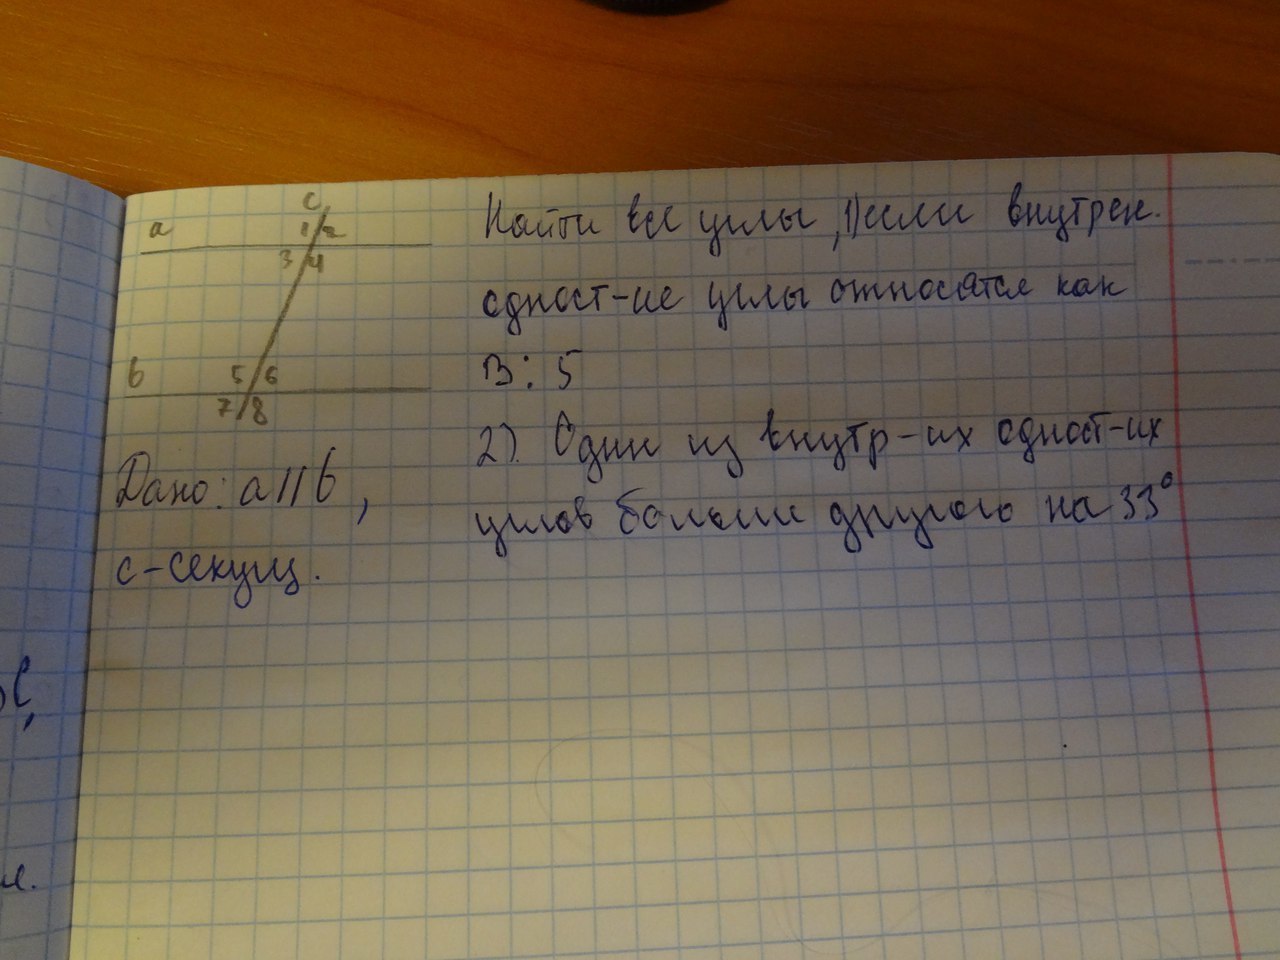 c
a
1 2
3 4
b
5 6
7 8
Дано: a || b,
c - секущ.
Найти все углы, 1) если внутрен.
одност-ие углы относятся как
3 : 5
2). Один из внутр-их одност-их
углов больше другого на 33°